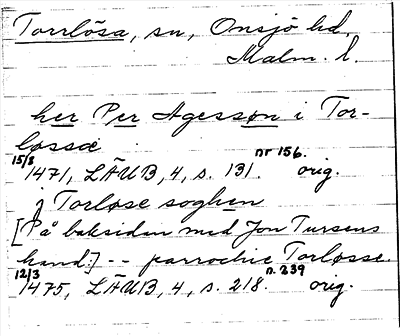 Torrlösa, sn, Onsjö hd,
Malm. l.
her Per Agessøn i Tor-
løssæ
15/8 1471, LÄUB, 4, s. 131. nr 156. orig.
j Torløse soghen
[På baksidan med Jon Tursens
hand:] -- parrochie Torløsse.
12/3 1475, LÄUB, 4, s. 218. n. 239 orig.